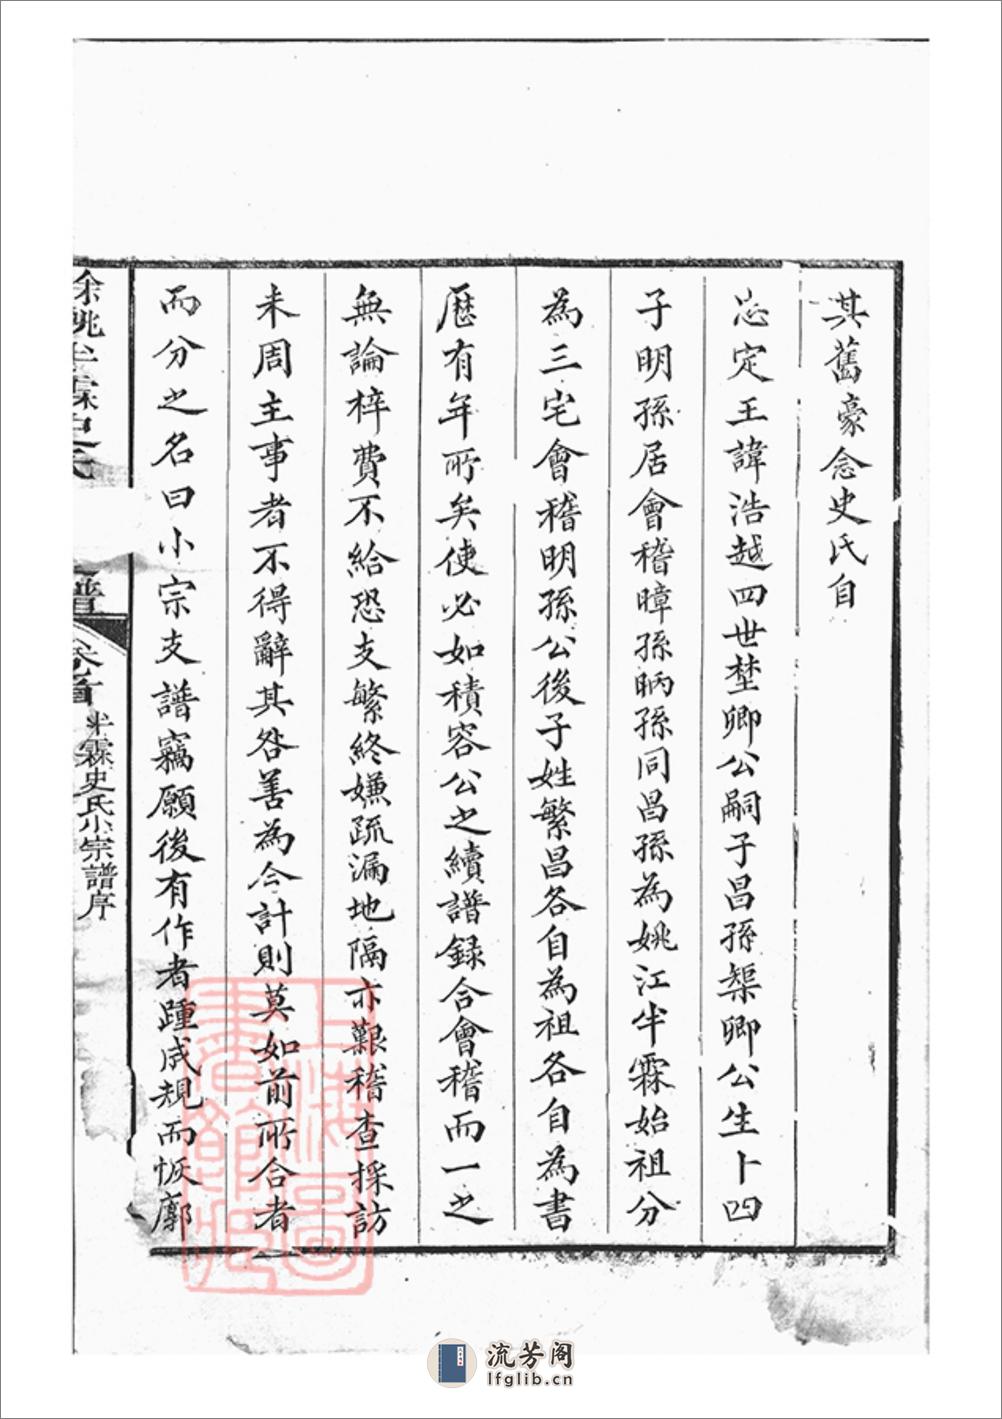 其舊豪念史氏自
忠定王諱浩越四世埜卿公嗣子昌孫椝卿公生卜四
子明孫居會稽暲孫昞孫同昌孫為姚江半霖始祖分
為三宅會稽明孫公後子姓繁昌各自為祖各自為書
歷有年所矣使必如積容公之續譜録合會稽而一之
無論梓費不給恐支繁終嫌疏漏地隔亦艱稽查採訪
未周主事者不得辭其咎善為今計則莫如前所合者
而分之名曰小宗支譜竊願後有作者踵成規而恢廓
餘姚半霖史氏 譜 卷首 半霖史氏小宗譜序
上海圖書館藏
流芳阁
lfglib.cn